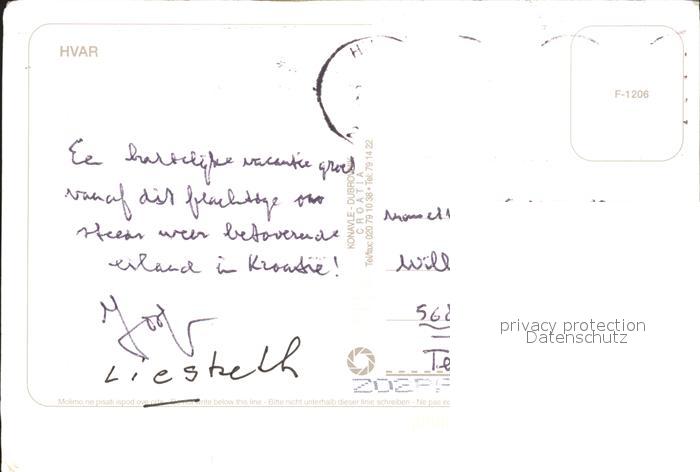 HVAR
F-1206
Een hartelijke vacantie groet
vanaf dit prachtige ons
steeds weer betoverende
eiland in Kroatië!
Joop
Liesbeth
KONAVLE - DUBROVNIK
CROATIA
Tel/fax: 020 79 10 38 • Tel: 79 14 22
Will
562
Te
privacy protection
Datenschutz
Molimo ne pisati ispod ove crte - Do not write below this line - Bitte nicht unterhalb dieser linie schreiben - Ne pas